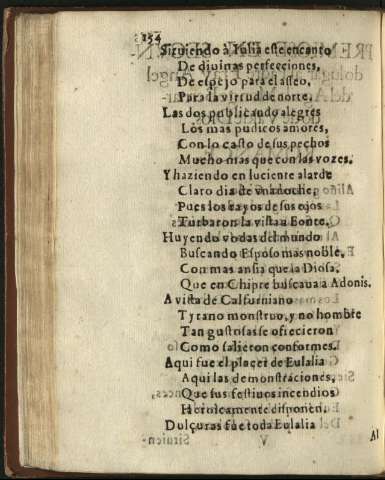 154
Siguiendo à Iulia este encanto
De diuinas perfecciones,
De espejo para el asseo,
Para la virtud de norte.
Las dos publicando alegres
Los mas pudicos amores,
Con lo casto de sus pechos
Mucho mas que con las vozes.
Y haziendo en luciente alarde
Claro dia de vna noche,
Pues los rayos de sus ojos
Turbaron la vista a Fonte.
Huyendo vodas del mundo
Buscando Esposo mas noble,
Con mas ansia que la Diosa,
Que en Chipre buscaua a Adonis.
A vista de Calfurniano
Tyrano monstruo, y no hombre
Tan gustosas se ofrecieron
Como salieron conformes.
Aqui fue el placer de Eulalia
Aqui las demonstraciones,
Que sus festiuos incendios
Heroicamente disponen.
Dulçuras fue toda Eulalia
Al